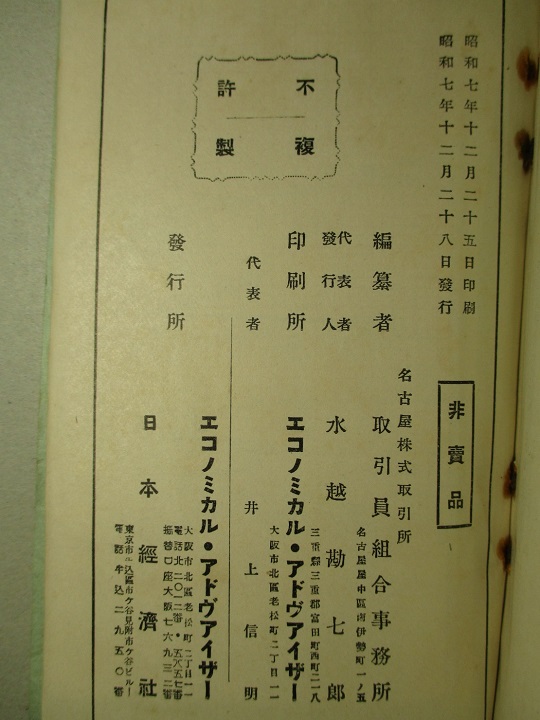 昭和七年十二月二十五日印刷
昭和七年十二月二十八日發行
非賣品
不許複製
名古屋株式取引所
編纂者 取引員組合事務所
名古屋市中區南伊勢町一ノ五
代表者
發行人 水越勘七郎
三重縣三重郡富田町西町二一八
印刷所 エコノミカル・アドヴアイザー
大阪市北區老松町二丁目一一
代表者 井上信明
發行所 エコノミカル・アドヴアイザー
大阪市北區老松町二丁目一一
電話北二〇一二番・五六五七番
振替口座大阪七六九三二番
日本經濟社
東京市牛込區市ケ谷見附市ケ谷ビル
電話牛込二九五〇番